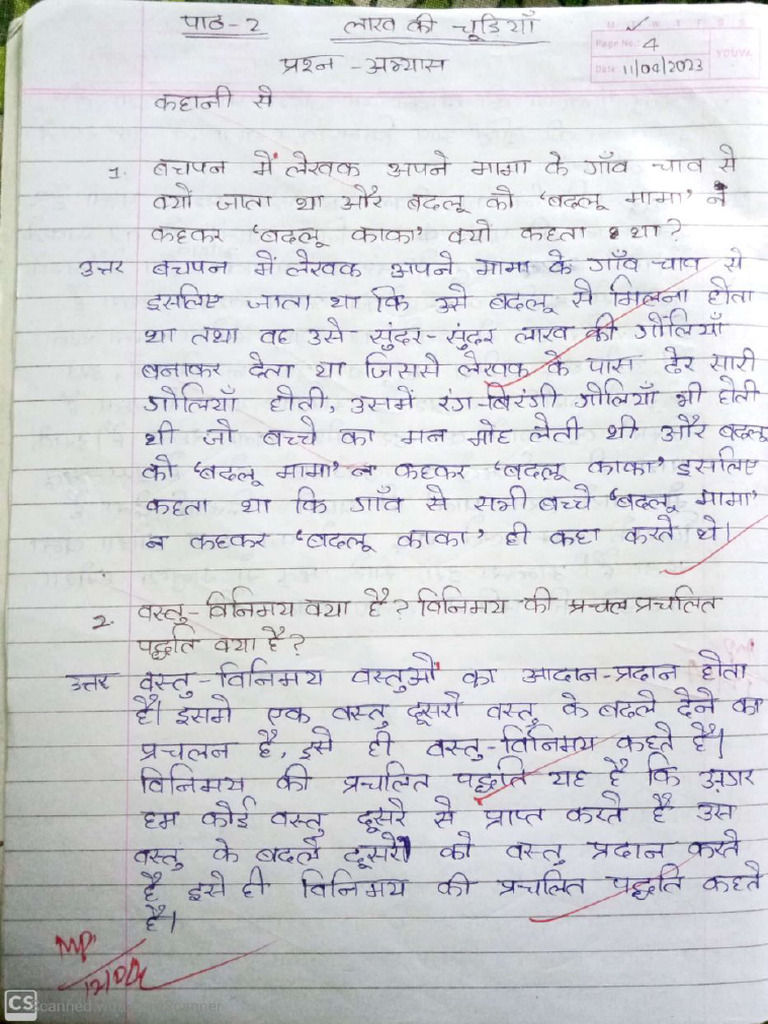 पाठ-2 लाख की चूड़ियाँ
Page No.: 4
YOUVA
Date: 11/04/2023
प्रश्न -अभ्यास
कहानी से
1. बचपन में लेखक अपने मामा के गाँव चाव से
क्यों जाता था और बदलू को 'बदलू मामा' न
कहकर 'बदलू काका' क्यों कहता था?
उत्तर बचपन में लेखक अपने मामा के गाँव चाव से
इसलिए जाता था कि उसे बदलू से मिलना होता
था तथा वह उसे सुंदर-सुंदर लाख की गोलियाँ
बनाकर देता था जिससे लेखक के पास ढेर सारी
गोलियाँ होती, उसमें रंग-बिरंगी गोलियाँ भी होती
थी जो बच्चे का मन मोह लेती थी और बदलू
को 'बदलू मामा' न कहकर 'बदलू काका' इसलिए
कहता था कि गाँव से सभी बच्चे 'बदलू मामा'
न कहकर 'बदलू काका' ही कहा करते थे।
2. वस्तु-विनिमय क्या है? विनिमय की प्रचल प्रचलित
पद्धति क्या है?
उत्तर वस्तु-विनिमय वस्तुओं का आदान-प्रदान होता
है। इसमे एक वस्तु दूसरी वस्तु के बदले देने का
प्रचलन है, इसे ही वस्तु-विनिमय कहते है।
विनिमय की प्रचलित पद्धति यह है कि अगर
हम कोई वस्तु दूसरे से प्राप्त करते है उस
वस्तु के बदले दूसरों को वस्तु प्रदान करते
है इसे ही विनिमय की प्रचलित पद्धति कहते
है।
CS Scanned with CamScanner